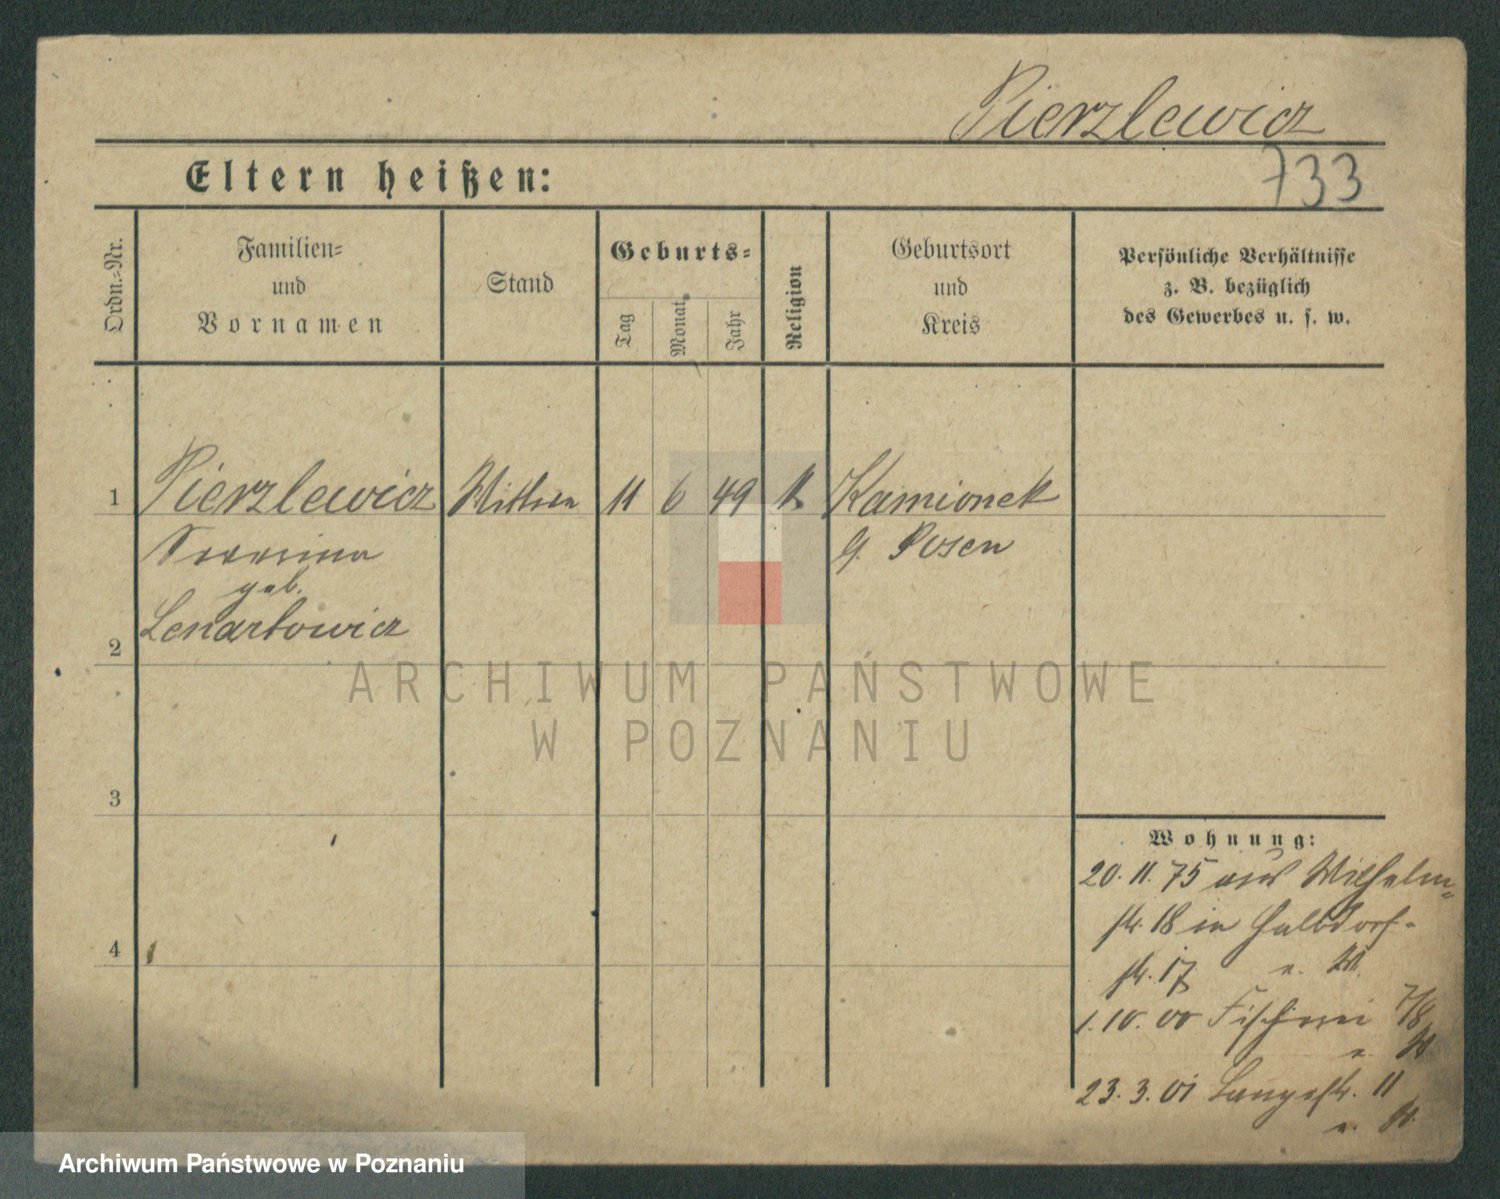 Pierzlewicz
Eltern heißen:
733
Ordn.=Nr.
Familien=
und
Vornamen
Stand
Geburts=
Tag
Monat
Jahr
Religion
Geburtsort
und
Kreis
Persönliche Verhältnisse
z. B. bezüglich
des Gewerbes u. s. w.
1 Pierzlewicz 11 6 49 k Kamionek
G. Posen
geb.
2 Lenartowicz
ARCHIWUM PAŃSTWOWE
W POZNANIU
3
Wohnung:
20. 11. 75 aus Wilhelm=
str. 18 in Halbdorf-
4
str. 17
1. 10. 00 Fischerei 7/8
23. 3. 01 Langestr. 11
Archiwum Państwowe w Poznaniu